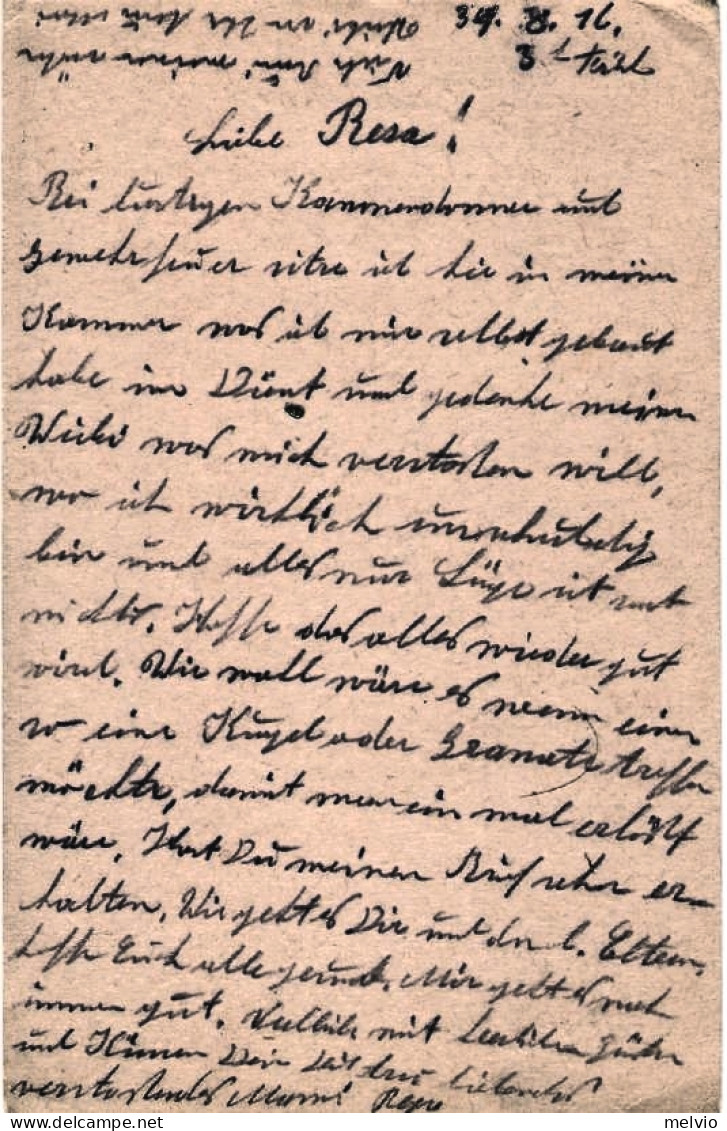 34. 8. 16.
3 h früh
Liebe Resa!
Bei lustigen Kannonendonner und
Gewehrfeuer sitze ich hie in meiner
Kammer was ich mir selbst gebaut
habe im Dienst und gedenke meinen
Weibi was mich verstosten will,
wo ich wirklich unschuldig
bin und alles nur Lüge ist und
nichts. Hoffe das alles wieder gut
wird. Wie woll wäre es wenn einen
so eine Kugel oder Granate treffen
möchte, damit man ein mal erlöst
wäre. Hast Du meinen Brief schon er-
halten. Wie geht es Dir und den l. Eltern,
hoffe Euch alle gesund. Mir geht es noch
immer gut. Verbleibe mit herzlichen Grüßen
und Küssen Dein Dich treu liebendes
verstostendes Manni